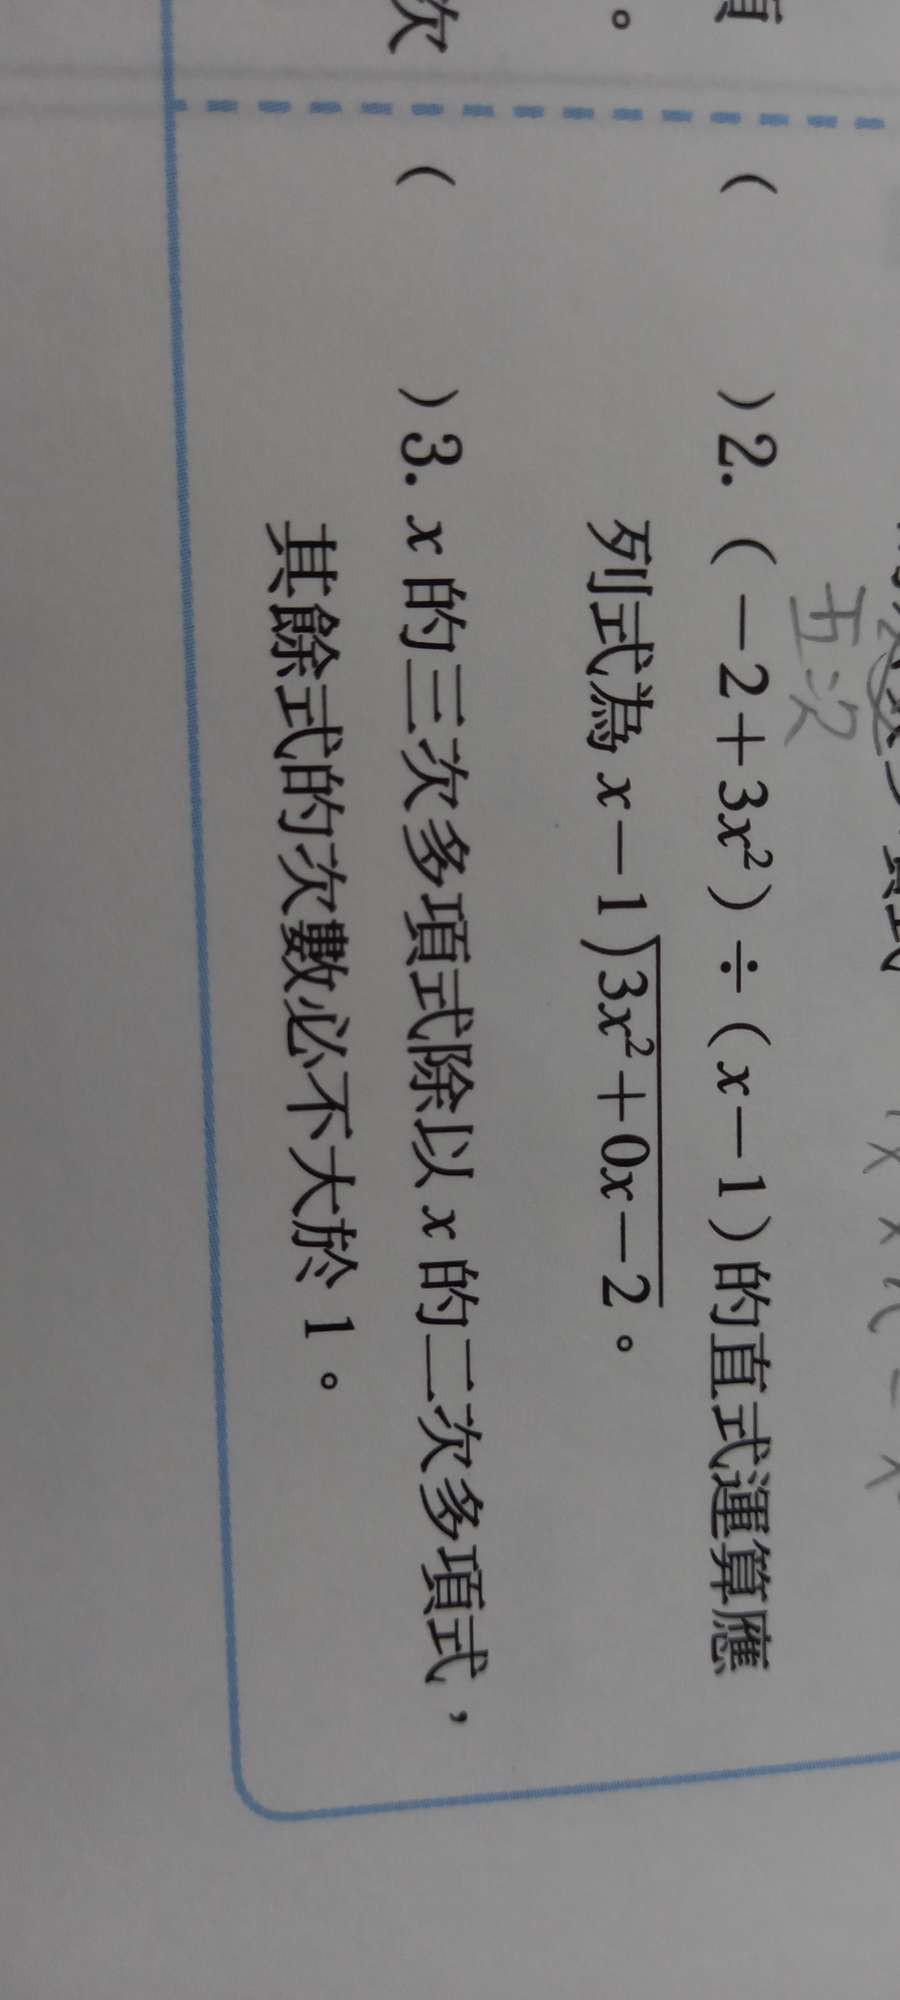 五次
(　　) 2. (−2+3x²)÷(x−1)的直式運算應
列式為 x−1)3x²+0x−2。
(　　) 3. x 的三次多項式除以 x 的二次多項式，
其餘式的次數必不大於 1。
次